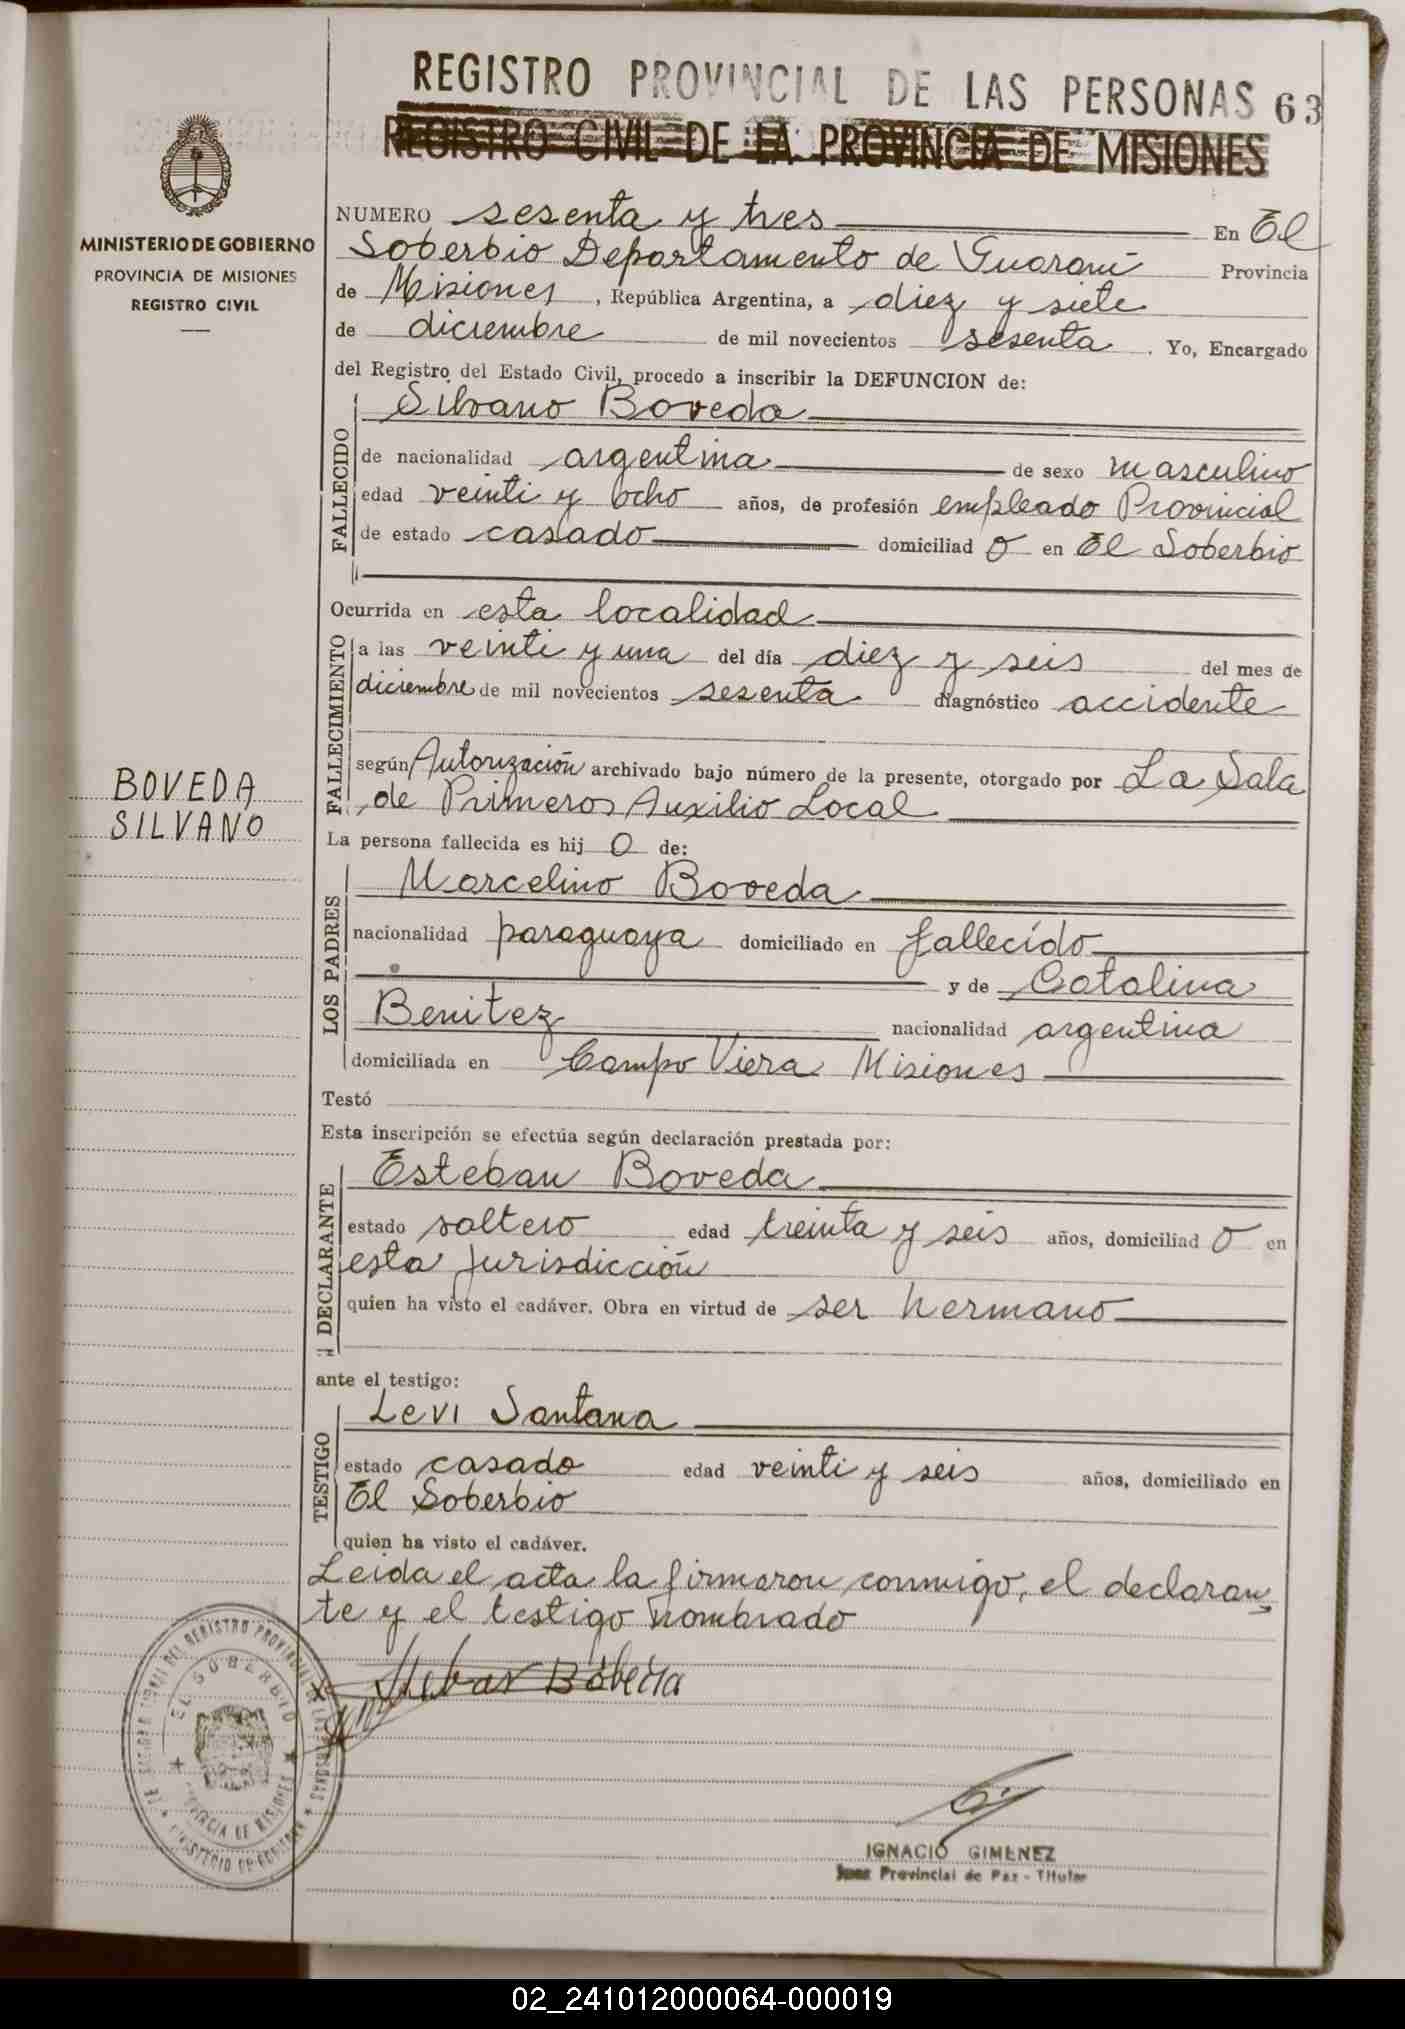 REGISTRO PROVINCIAL DE LAS PERSONAS 63
REGISTRO CIVIL DE LA PROVINCIA DE MISIONES
MINISTERIO DE GOBIERNO
PROVINCIA DE MISIONES
REGISTRO CIVIL
NUMERO sesenta y tres En El
Soberbio Departamento de Guaraní Provincia
de Misiones, República Argentina, a diez y siete
de diciembre de mil novecientos sesenta. Yo, Encargado
del Registro del Estado Civil, procedo a inscribir la DEFUNCION de:
FALLECIDO
Silvano Boveda
de nacionalidad argentina de sexo masculino
edad veinti y ocho años, de profesión empleado Provincial
de estado casado domiciliad o en El Soberbio
Ocurrida en esta localidad
FALLECIMIENTO
a las veinti y una del día diez y seis del mes de
diciembre de mil novecientos sesenta diagnóstico accidente
según Autorización archivado bajo número de la presente, otorgado por La Sala
de Primeros Auxilio Local
BOVEDA
SILVANO
La persona fallecida es hij o de:
LOS PADRES
Marcelino Boveda
nacionalidad paraguaya domiciliado en fallecido
y de Catalina
Benitez nacionalidad argentina
domiciliada en Campo Viera Misiones
Testó
Esta inscripción se efectúa según declaración prestada por:
DECLARANTE
Esteban Boveda
estado soltero edad treinta y seis años, domiciliad o en
esta jurisdicción
quien ha visto el cadáver. Obra en virtud de ser hermano
ante el testigo:
TESTIGO
Levi Santana
estado casado edad veinti y seis años, domiciliado en
El Soberbio
quien ha visto el cadáver.
Leida el acta la firmaron conmigo, el declaran
te y el testigo nombrado
EL SOBERBIO
PROVINCIA DE MISIONES
IGNACIO GIMENEZ
Juez Provincial de Paz - Titular
02_241012000064-000019